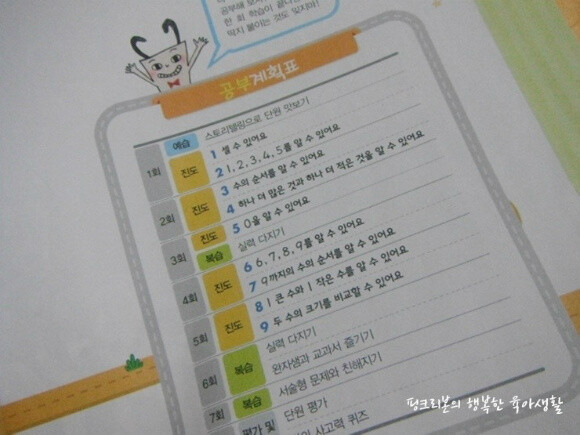 공부해 보자
한 회 학습이 끝나
딱지 붙이는 것도 잊지마!
공부계획표
예습 스토리텔링으로 단원 맛보기
1회 진도 1 셀 수 있어요
2 1, 2, 3, 4, 5를 알 수 있어요
3 수의 순서를 알 수 있어요
2회 진도 4 하나 더 많은 것과 하나 더 적은 것을 알 수 있어요
진도 5 0을 알 수 있어요
3회 복습 실력 다지기
4회 진도 6 6, 7, 8, 9를 알 수 있어요
7 9까지의 수의 순서를 알 수 있어요
5회 진도 8 1 큰 수와 1 작은 수를 알 수 있어요
9 두 수의 크기를 비교할 수 있어요
6회 복습 실력 다지기
완자쌤과 교과서 즐기기
7회 복습 서술형 문제와 친해지기
평가 및 단원 평가
사고력 퀴즈
핑크리본의 행복한 육아생활